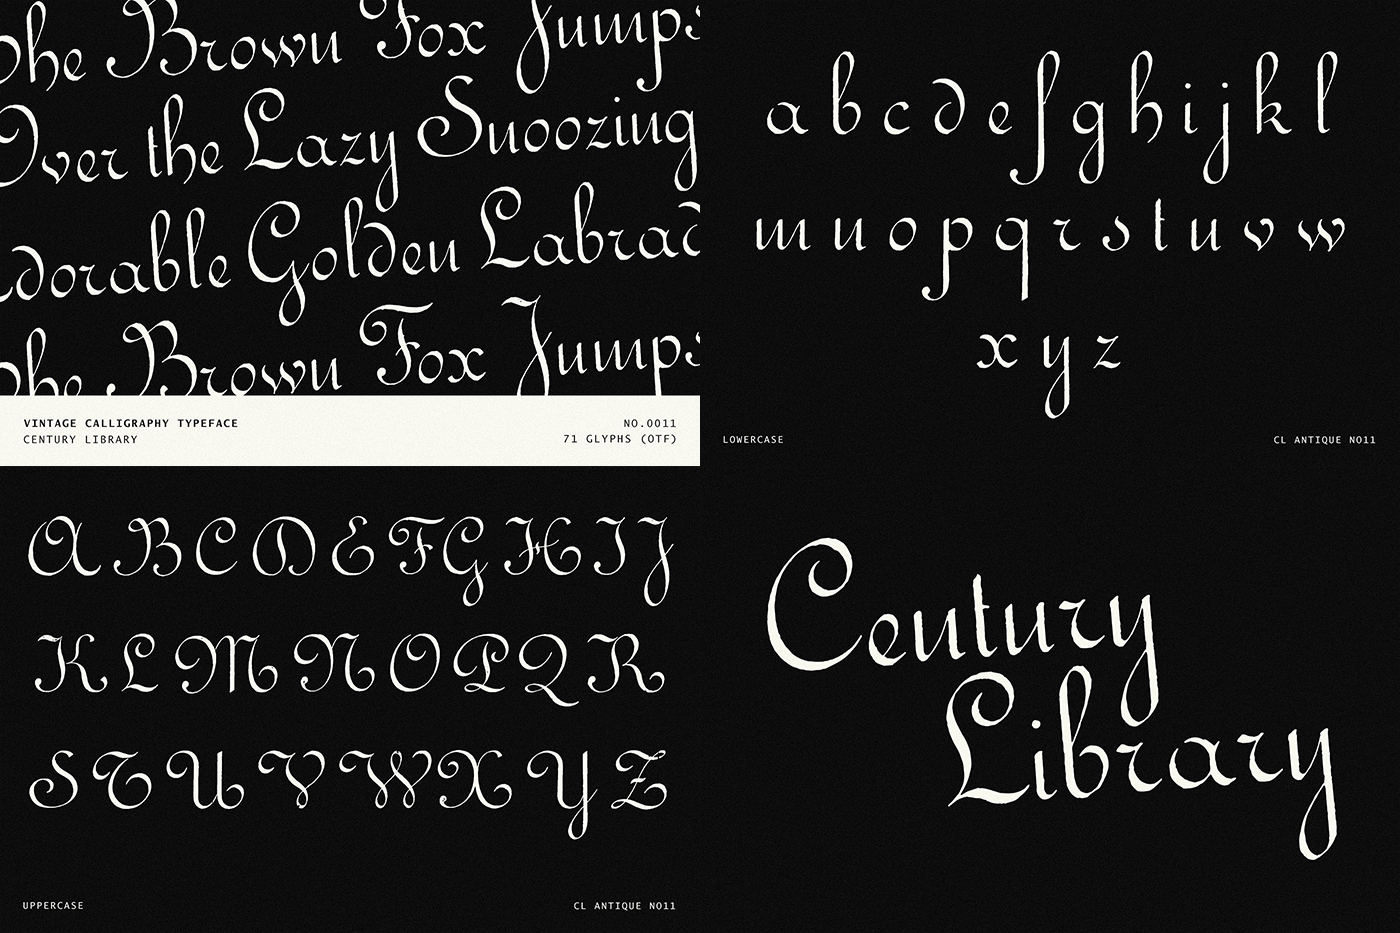 The Brown Fox Jumps
Over the Lazy Snoozing
Adorable Golden Labrad
The Brown Fox Jumps
VINTAGE CALLIGRAPHY TYPEFACE
CENTURY LIBRARY
NO.0011
71 GLYPHS (OTF)
a b c d e f g h i j k l
m n o p q r s t u v w
x y z
LOWERCASE
CL ANTIQUE NO11
A B C D E F G H I J
K L M N O P Q R
S T U V W X Y Z
UPPERCASE
CL ANTIQUE NO11
Century
Library